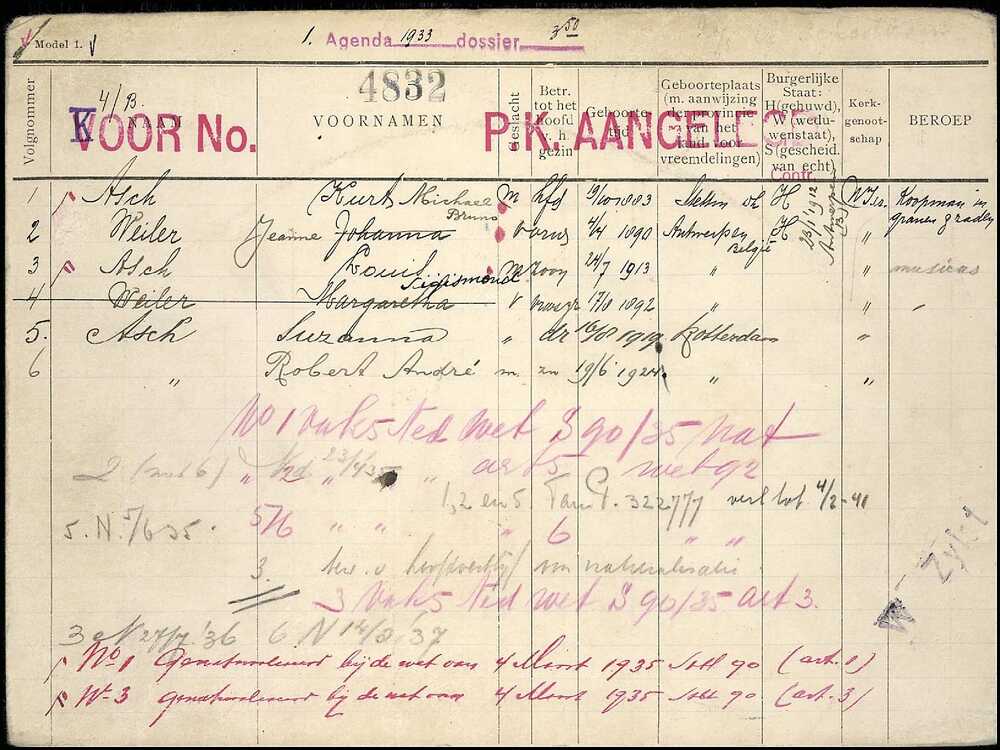 Model 1. 1. Agenda 1933 dossier 3⁵⁰
4832
4/B.
K VOOR No. P.K. AANGELEGD
Contr.
Volgnommer NAAM VOORNAMEN Geslacht Betr. tot het Hoofd v. h. gezin Geboorte-tijd Geboorteplaats (m. aanwijzing der provincie van het land voor vreemdelingen) Burgerlijke Staat: H(gehuwd), W(weduwenstaat), S(gescheid. van echt) Kerkgenootschap BEROEP
1 Asch Kurt Michael Bruno M hfd 19/10 1883 Stettin H N Isr. Koopman in granen
2 Weiler Jeanne Johanna v vrouw 4/4 1890 Antwerpen België H 23/1 1912 Antwerpen "
3 Asch Louis Sigismond M zoon 24/7 1913 " " musicus
4 Weiler Margaretha v 17/8 1892 " "
5. Asch Suzanna " dr 16/8 1919 Rotterdam "
6 " Robert André m. zn 19/6 1924 " "
No 1 Ned wet S 90/35 nat
2 (met 6) " Ned 23/4 35 " art 5 wet 92
1, 2 en 5 322777 verl tot 4/2-41
5. N. 5/6 35 5/6 " " " 6 " "
3. naturalisatie
3 Ned wet S 90/35 art 3.
3 N 27/7 '36 6 N '37
No 1 Genaturaliseerd bij de wet van 4 Maart 1935 Stbl 90 (art. 1)
No 3 genaturaliseerd bij de wet van 4 Maart 1935 Stbl 90 (art. 3)